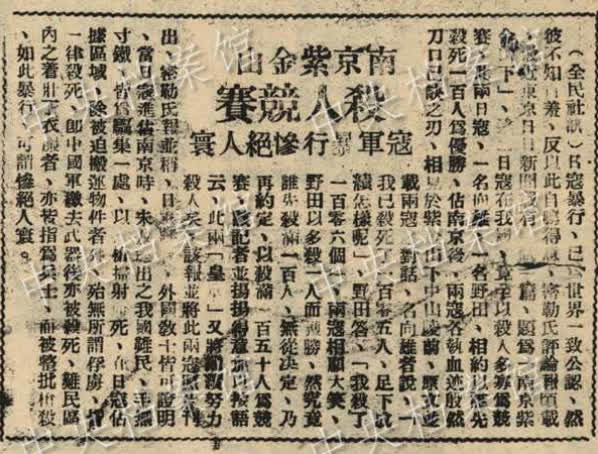 南京紫金山
殺人競賽
寇軍暴行慘絕人寰
（全民社訊）日寇暴行，已世界一致公認，然
彼不知自羞，反以此自鳴得意，密勒氏評論報頃載
，最近東京日日新聞載有篇，題爲南京紫
金山下」，述二日寇在我國，竟乎以殺人多寡爲競
賽，此兩日寇，一名向雄，一名野田，相約以誰先
殺死一百人爲優勝，佔南京後，兩寇各執血迹殷然
刀口已缺之刃，相見於紫金山下中山陵前，東京報
載兩寇對話，名向雄者說，「
我已殺死了一百零五人，足下成
績怎樣呢」，野田答，「我殺了
一百零六個」，兩寇相顧大笑，
野田以多殺一人而獲勝，然究竟
誰先殺滿一百人，無從決定，乃
再約定，以殺滿一百五十人爲競
賽，該記者並揚揚得意加以按語
云，此兩「皇軍」又將繼續努力
殺人矣，該報並將此兩寇照片刊
出，密勒氏報並稱，日寇，外國教士皆可證明
，當日寇進佔南京時，未及逃出之我國難民，手無
寸鐵，皆爲驅集一處，以機槍掃射而死，在日寇佔
據區域，除被迫搬運物件者外，殆無所謂俘虜，皆
一律殺死，卽中國軍繳去武器後亦被殺死，難民區
內之着壯丁衣服者，亦被指爲兵士，而被整批槍殺
，如此暴行，可謂慘絕人寰。
中央檔案館